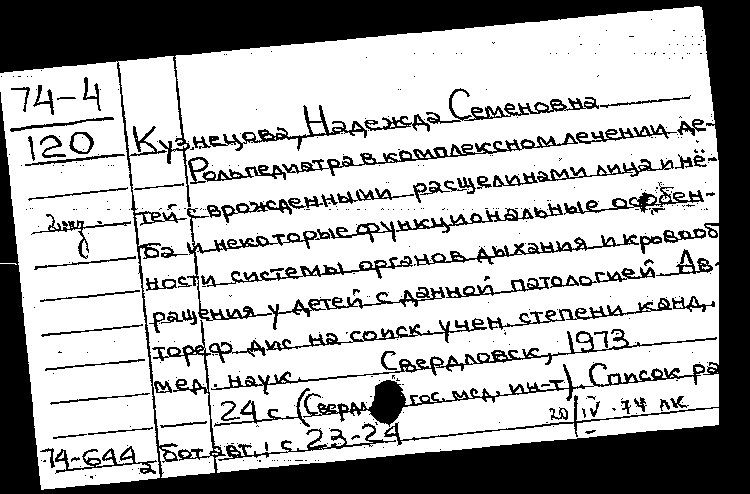 74-4
120
Кузнецова, Надежда Семеновна
Роль педиатра в комплексном лечении де-
тей с врожденными расщелинами лица и нё-
ба и некоторые функциональные особен-
ности системы органов дыхания и кровооб
ращения у детей с данной патологией. Ав-
тореф. дис. на соиск. учен. степени канд.
мед. наук. Свердловск, 1973.
24 с. (Свердл. гос. мед. ин-т). Список ра
бот авт.: с. 23-24.
20/IV.74 лк
74-644
2